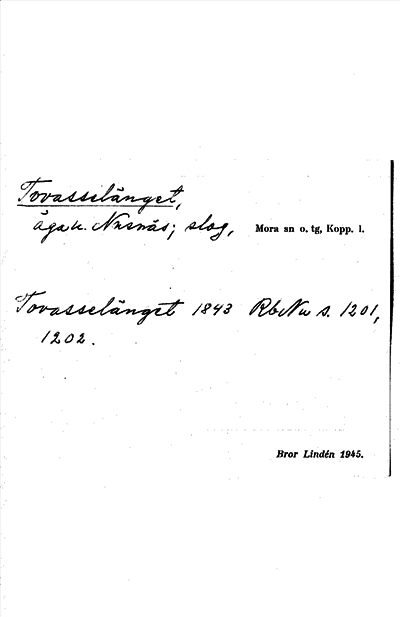 Tovasselänget,
ägan. Nusnäs; slog, Mora sn o. tg, Kopp. l.
Tovasselänget 1843 RbNu s. 1201,
1202.
Bror Lindén 1945.